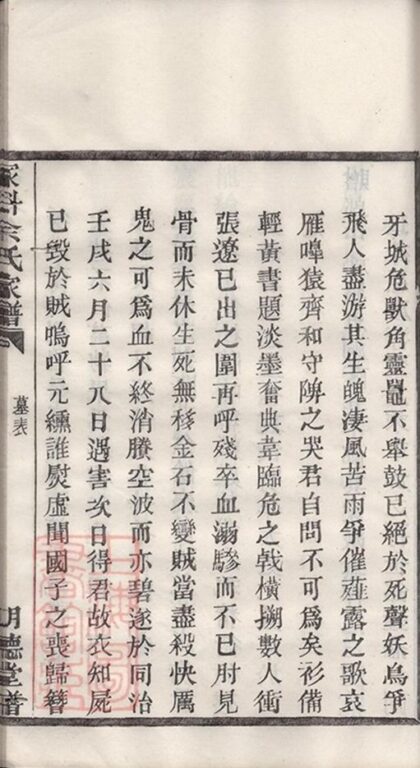 牙城危獸角靈鼉不舉鼓已絕於死聲妖鳥爭
飛人盡游其生魄淒風苦雨爭催薤露之歌哀
雁嘷猿齊和守陴之哭君自問不可為矣衫備
輕黃書題淡墨奮典韋臨危之戟橫搠數人衝
張遼已出之圍再呼殘卒血溺驂而不已肘見
骨而未休生死無移金石不變賊當盡殺快厲
鬼之可為血不終消騰空波而亦碧遂於同治
壬戌六月二十八日遇害次日得君故衣知屍
已毀於賊嗚呼元纁誰熨虛聞國子之喪歸簪
余氏家譜
墓表
明德堂譜